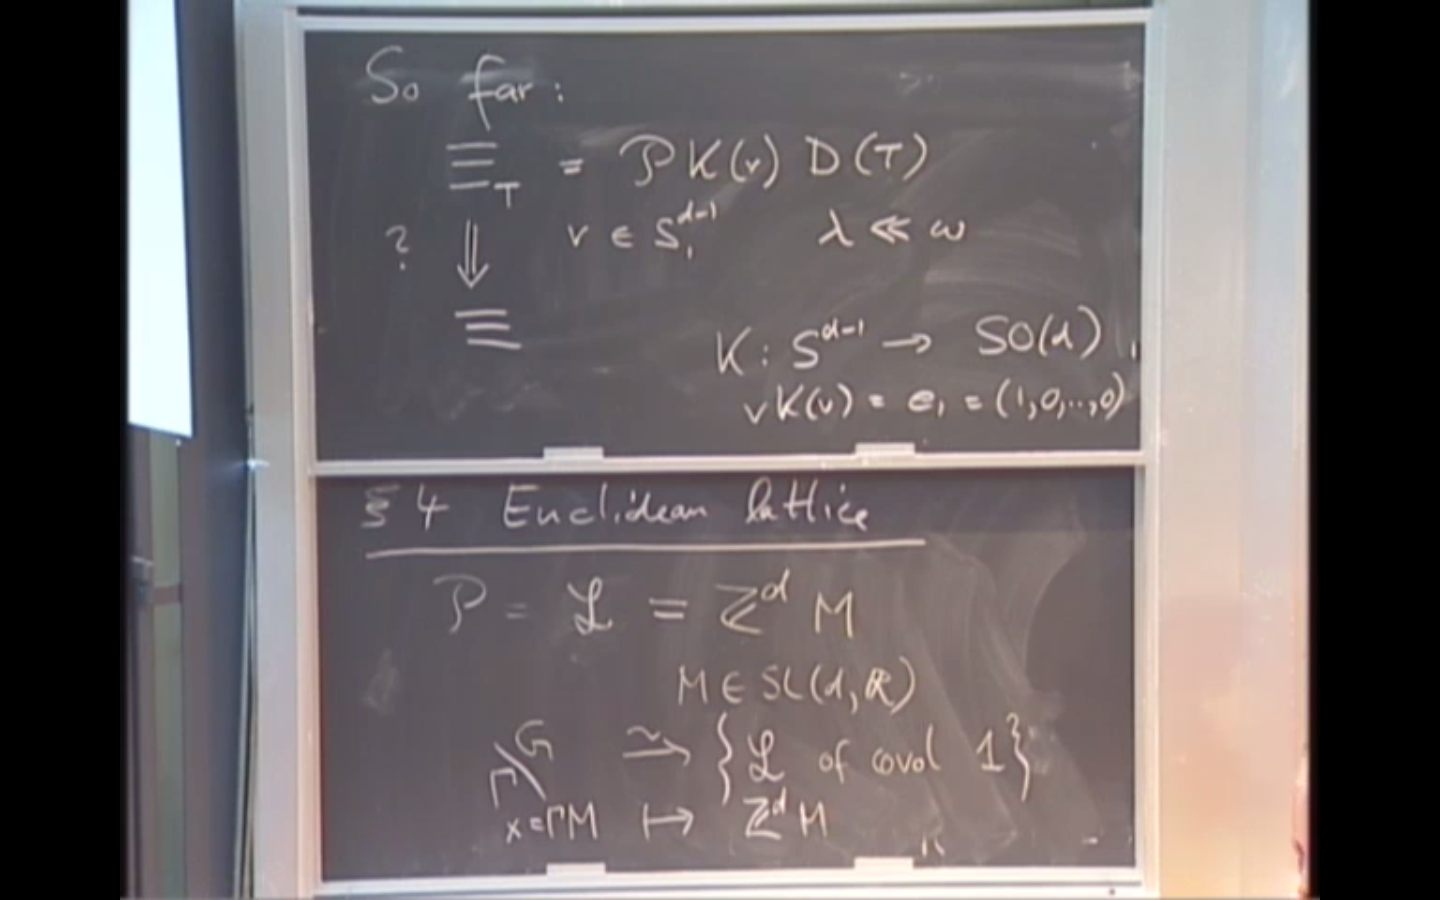 So far:
Ξ_T = 𝒫 K(v) D(T)
? ⇓ v ∈ S₁^{d-1} λ ≪ ω
Ξ
K: S^{d-1} → SO(d),
v K(v) = e₁ = (1,0,..,0)
§4 Euclidean lattice
𝒫 = ℒ = ℤ^d M
M ∈ SL(d,ℝ)
Γ\G ≃→ {ℒ of covol 1}
x=ΓM ↦ ℤ^d M